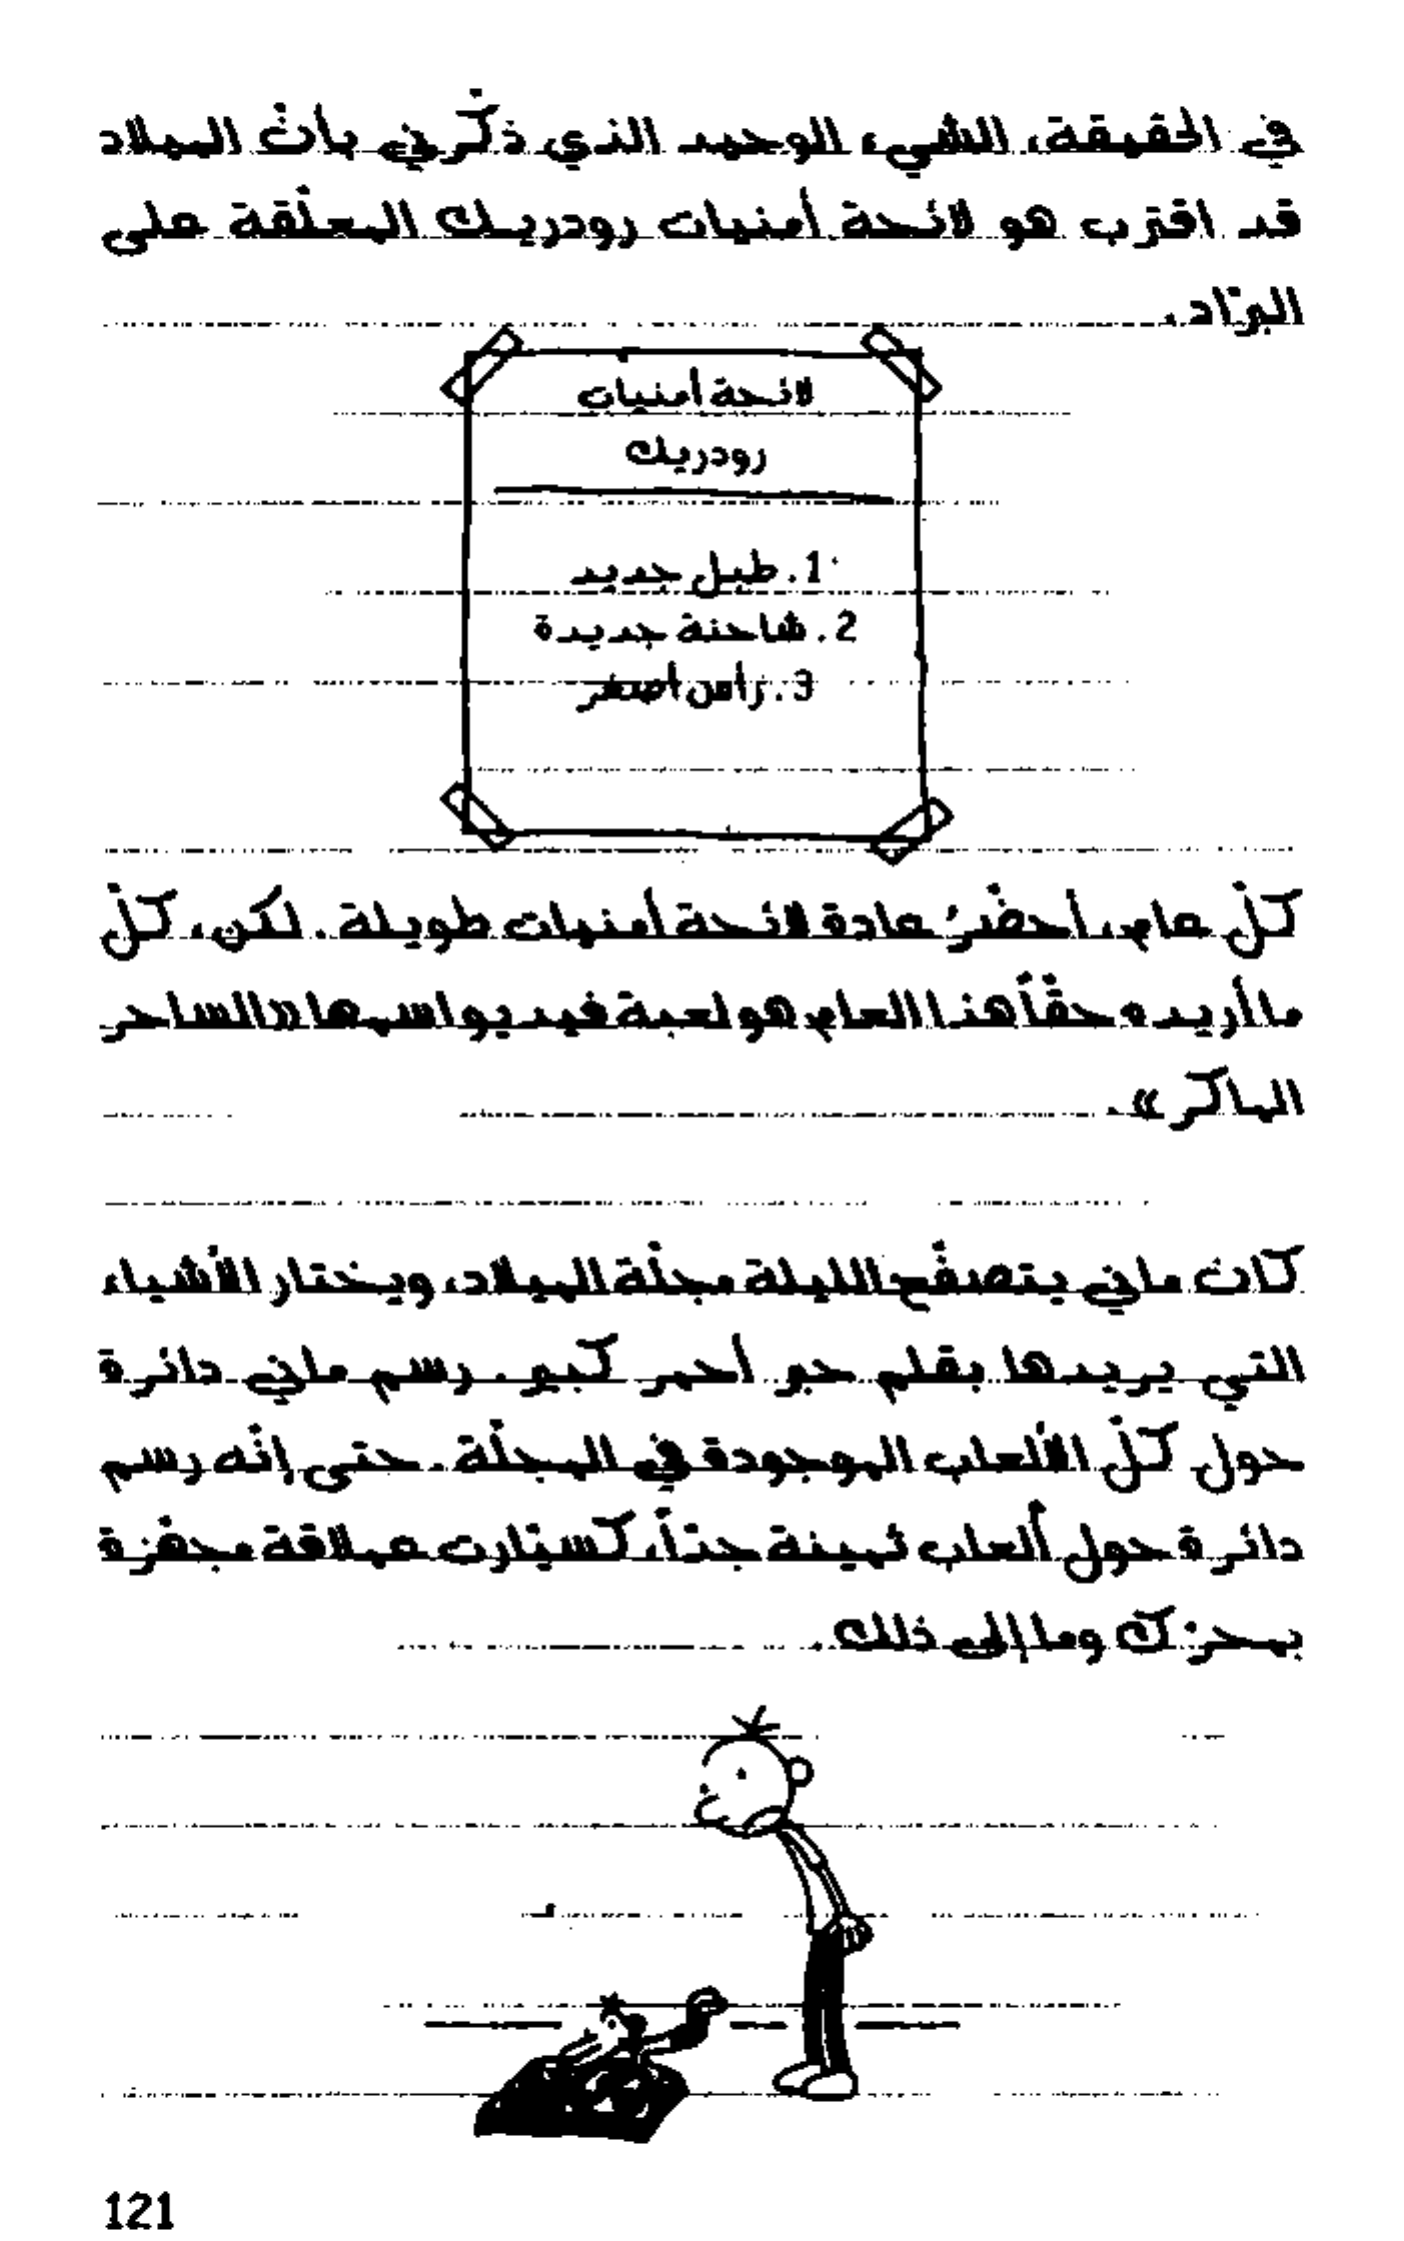 في الحقيقة، الشيء الوحيد الذي ذكّرني بأنّ الميلاد
قد اقترب هو لائحة أمنيات رودريك المعلّقة على
البرّاد.
لائحة أمنيات
رودريك
1. طبل جديد
2. شاحنة جديدة
3. رأس أصغر
كلّ عام، أحضّر عادة لائحة أمنيات طويلة. لكن، كلّ
ما أريده حقّاً هذا العام هو لعبة فيديو اسمها «الساحر
الماكر».
كان ماني يتصفّح الليلة مجلّة الميلاد، ويختار الأشياء
التي يريدها بقلم حبر أحمر كبير. رسم ماني دائرة
حول كلّ الألعاب الموجودة في المجلّة. حتى إنّه رسم
دائرة حول ألعاب ثمينة جدّاً، كسيّارت عملاقة مجهّزة
بمحرّك وما إلى ذلك.
121